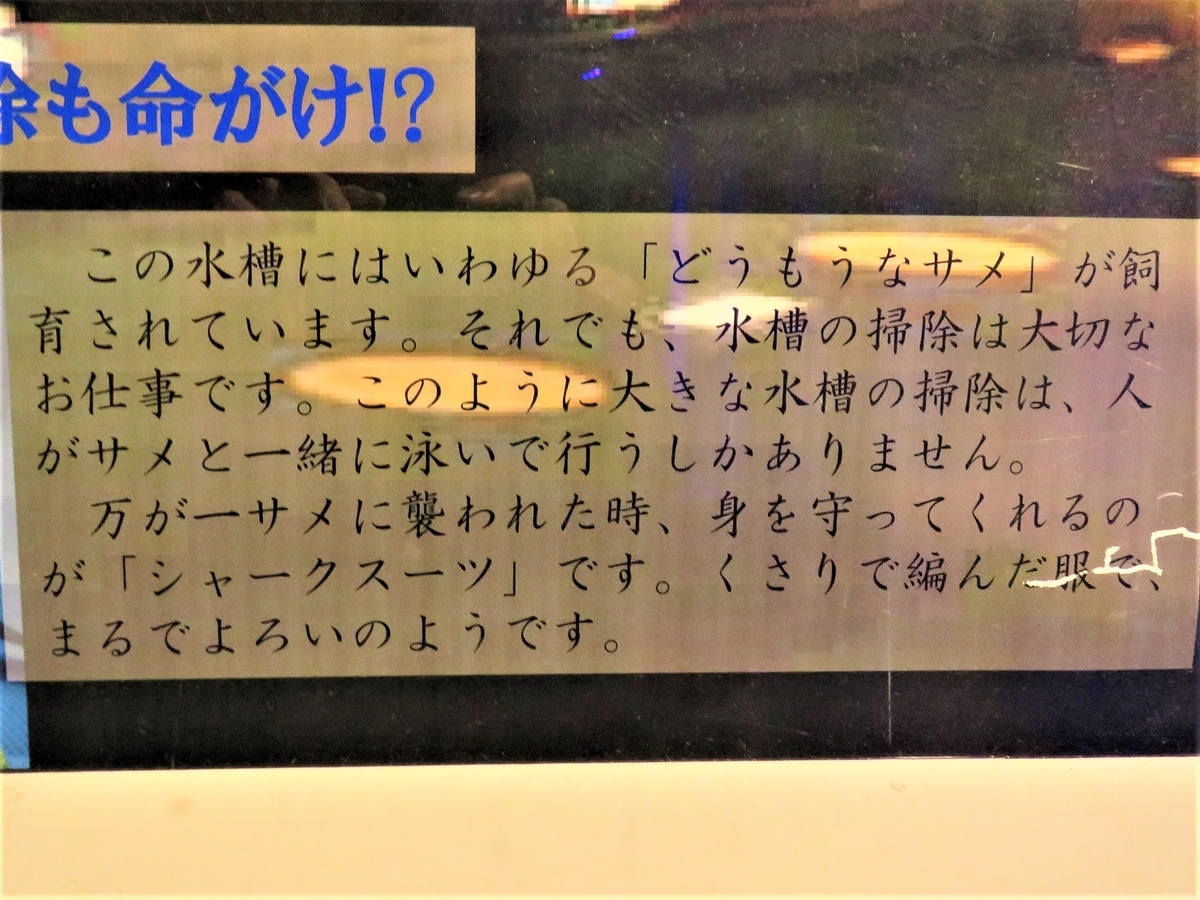 除も命がけ!?
この水槽にはいわゆる「どうもうなサメ」が飼
育されています。それでも、水槽の掃除は大切な
お仕事です。このように大きな水槽の掃除は、人
がサメと一緒に泳いで行うしかありません。
万が一サメに襲われた時、身を守ってくれるの
が「シャークスーツ」です。くさりで編んだ服で、
まるでよろいのようです。